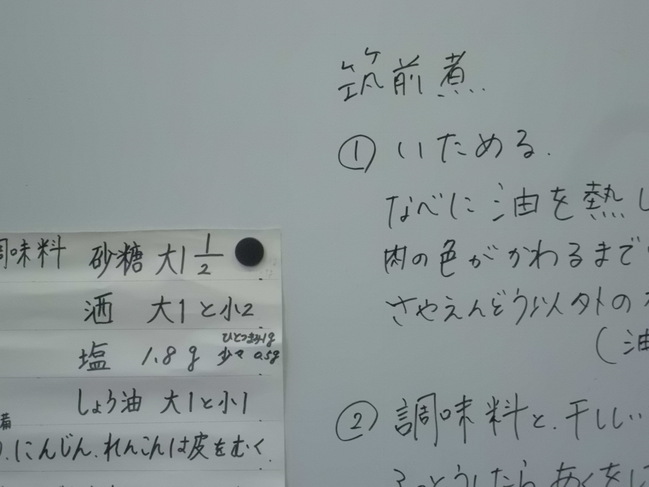 筑前煮
① いためる.
なべに油を熱し
肉の色がかわるまで
さやえんどう以外の
(油
② 調味料と、干しい
ふっとうしたらあくを
調味料 砂糖 大1 1/2
酒 大1と小2
塩 1.8g ひとつまみ1g 少々 0.5g
しょう油 大1と小1
にんじん、れんこんは皮をむく